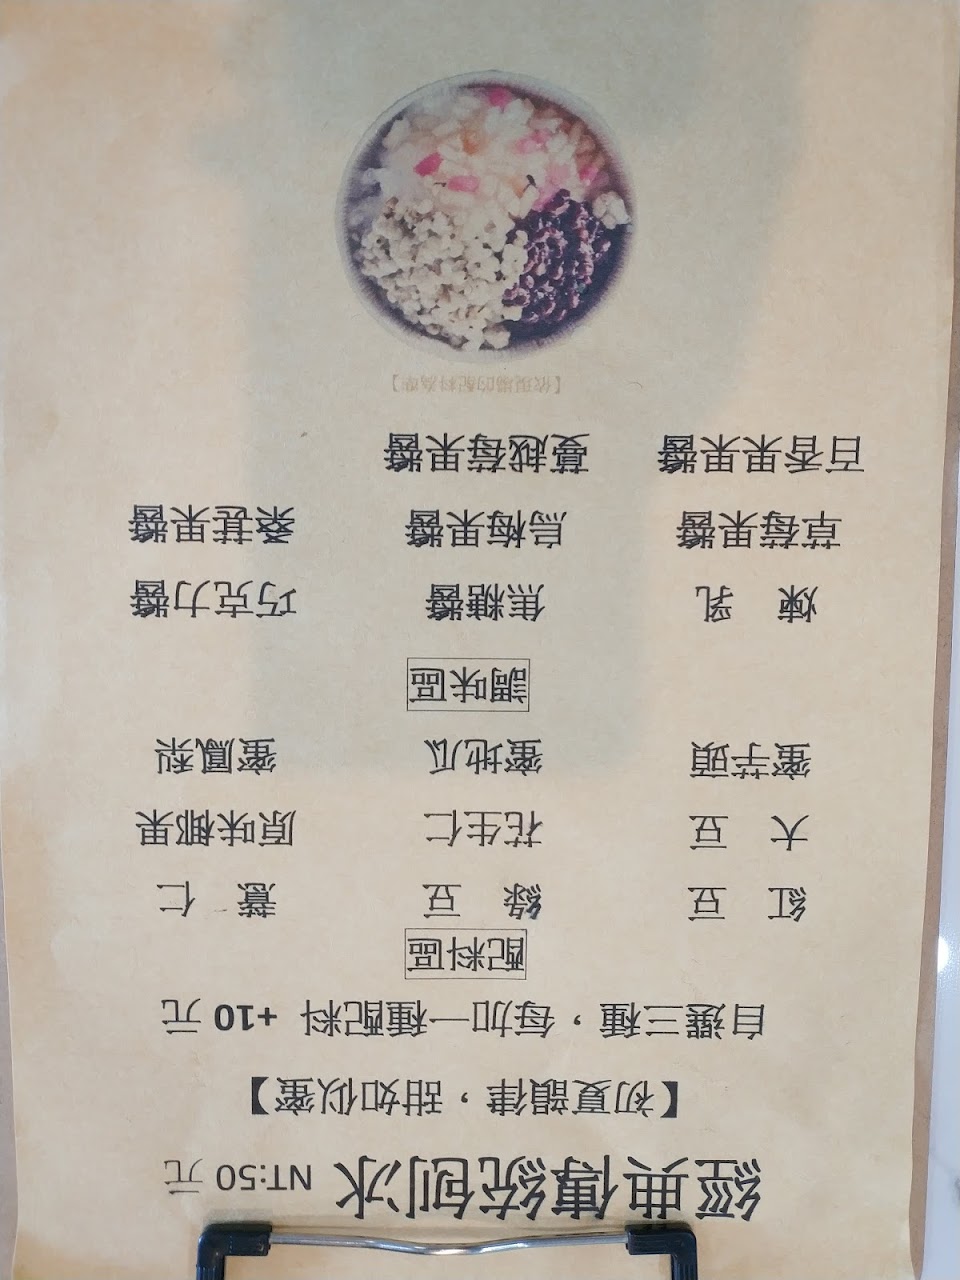 經典傳統刨冰 NT:50 元
【初夏韻律，甜如似蜜】
自選三種，每加一種配料 +10 元
配料區
紅 豆 綠 豆 薏 仁
大 豆 花生仁 原味椰果
蜜芋頭 蜜地瓜 蜜鳳梨
調味區
煉 乳 焦糖醬 巧克力醬
草莓果醬 烏梅果醬 桑葚果醬
百香果果醬 蔓越莓果醬
【依現場的配料為準】